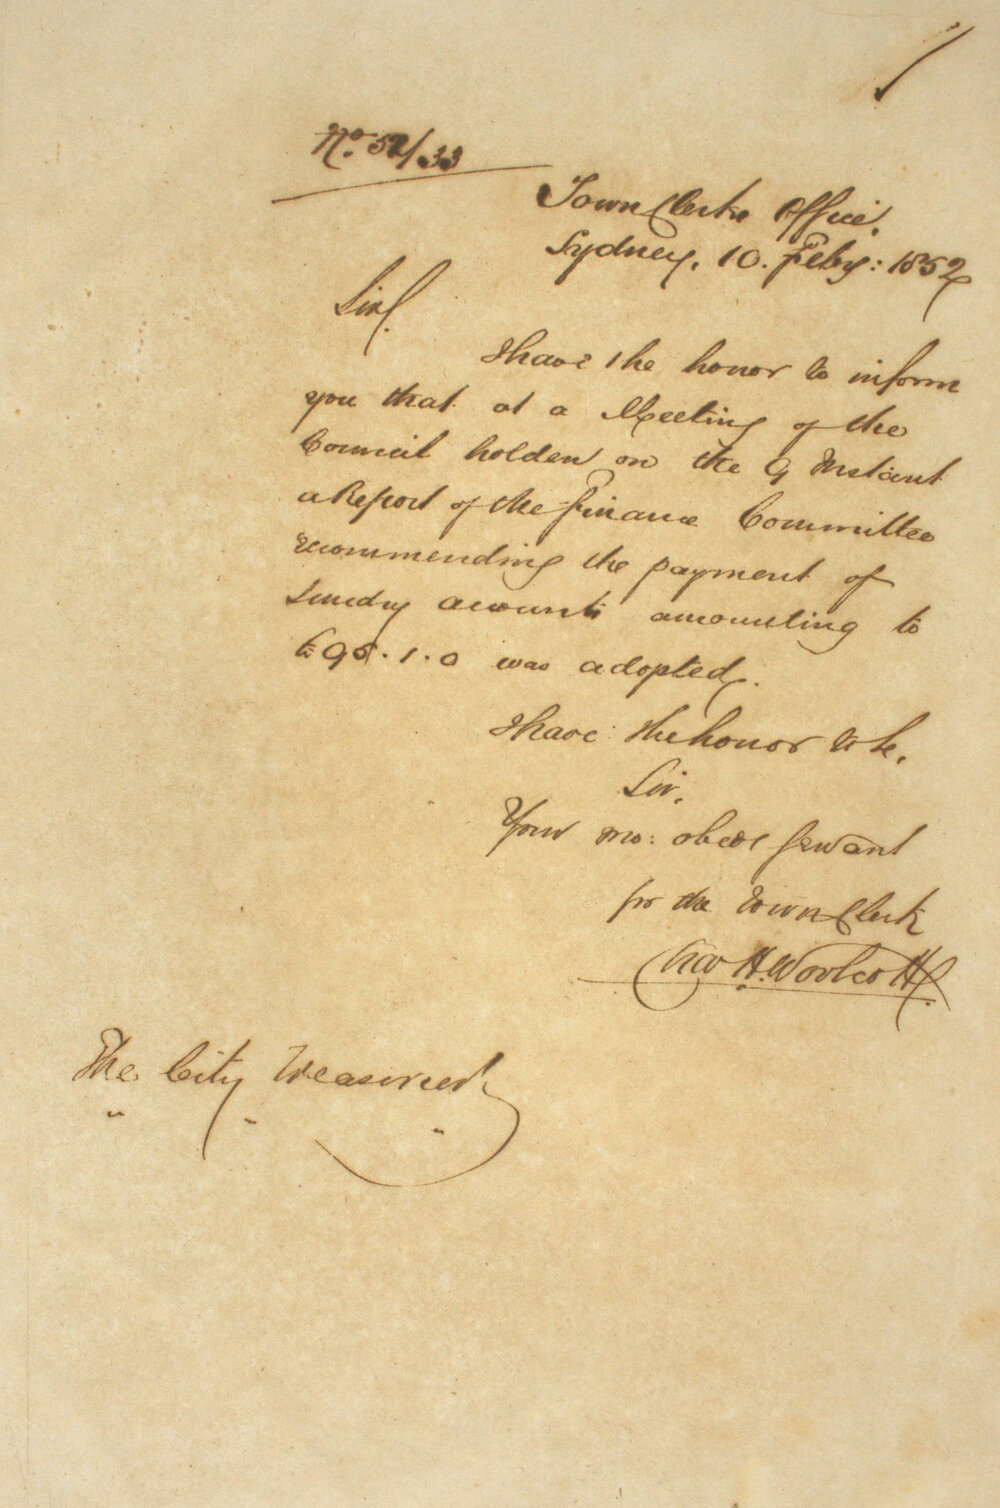 No. 52/33
Town Clerks Office,
Sydney, 10. Feby: 1852
Sir,
I have the honor to inform
you that at a Meeting of the
Council holden on the 9 Instant
a Report of the Finance Committee
recommending the payment of
sundry accounts amounting to
£95.1.0 was adopted.
I have the honor to be,
Sir,
Your mo: obedt Servant
for the Town Clerk
Chas H. Woolcott
The City Treasurer